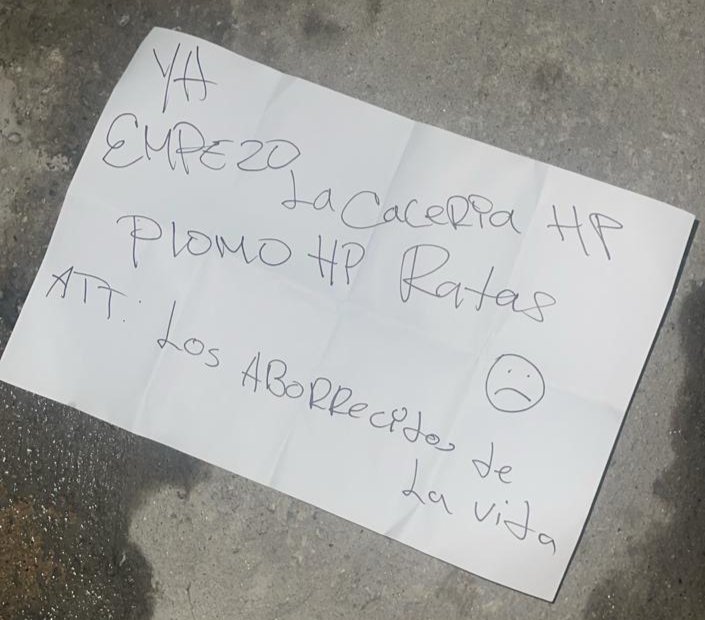 YA
EMPEZO
La CaceRia HP
PlOMO HP Ratas
ATT: Los ABORRecidos de
La vida